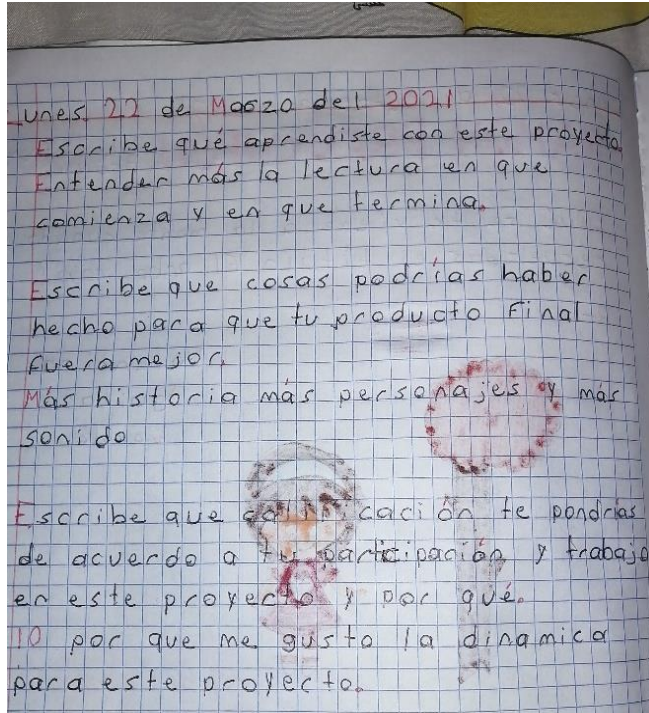 Lunes 22 de Marzo del 2021
Escribe qué aprendiste con este proyecto
Entender más la lectura en que
comienza y en que termina.
Escribe que cosas podrías haber
hecho para que tu producto Final
Fuera mejor.
Más historia más personajes y más
sonido
Escribe que calificación te pondrías
de acuerdo a tu participación y trabajo
en este proyecto y por qué.
10 por que me gusto la dinamica
para este proyecto.